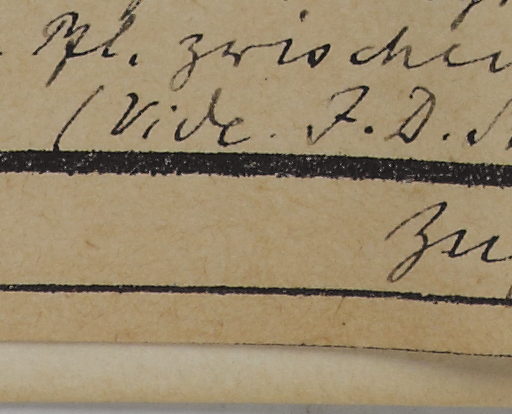 Pfl. zwischen
(Vide. F. D.
Zu